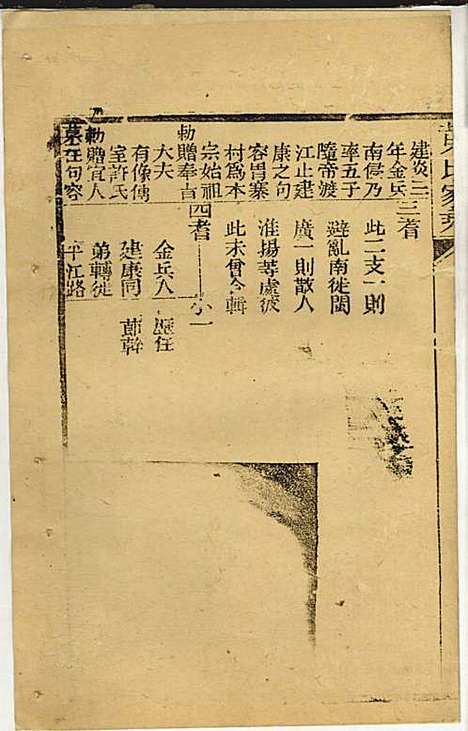 氏家
建炎三
年金兵
南侵乃
率五子
隨帝渡
江止建
康之句
容胄寨
村爲本
宗始祖
勅贈奉直
大夫
有像傳
室許氏
勅贈宜人
墓在句容
三耆
此二支一則
避亂南徙閩
廣一則散人
淮揚等處彼
此未曾合輯
四耆
金兵入
建康同
弟轉徙
平江路
小一
歷任
節幹